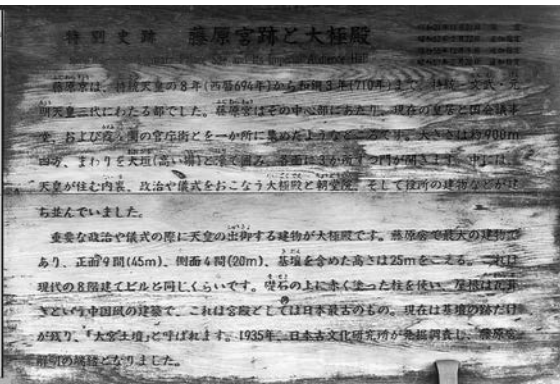 特別史跡 藤原宮跡と大極殿
藤原京は、持統天皇の8年(西暦694年)から和銅3年(710年)まで、持統・文武・元
明天皇三代にわたる都でした。藤原宮はその中心部にあたり、現在の皇居と国会議事
堂、および霞ヶ関の官庁街とを一か所に集めたようなところです。大きさは約900m
四方、まわりを大垣(高い塀)と濠で囲み、各面に3か所ずつ門が開きます。中には、
天皇が住む内裏、政治や儀式をおこなう大極殿と朝堂院、そして役所の建物などが建
ち並んでいました。
重要な政治や儀式の際に天皇の出御する建物が大極殿です。藤原宮で最大の建物で
あり、正面9間(45m)、側面4間(20m)、基壇を含めた高さは25mをこえる。これは
現代の8階建てビルと同じくらいです。礎石の上に赤く塗った柱を使い、屋根は瓦葺
きという中国風の建築で、これは宮殿としては日本最古のもの。現在は基壇の跡だけ
が残り、「大宮土壇」と呼ばれます。1935年、日本古文化研究所が発掘調査し、藤原宮
解明の端緒となりました。